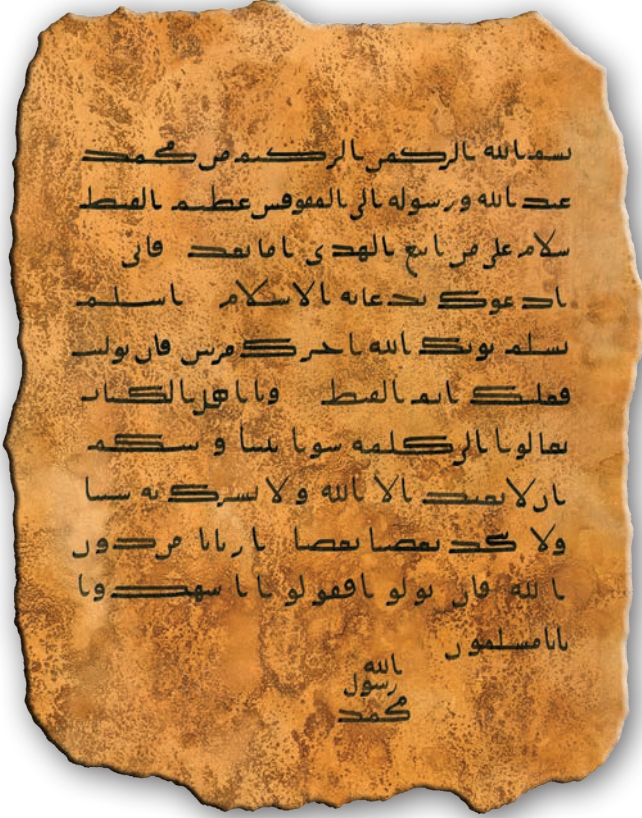 بسم الله الرحمن الرحيم من محمد
عبد الله ورسوله الى المقوقس عظيم القبط
سلام على من اتبع الهدى اما بعد فانى
ادعوك بدعاية الاسلام اسلم
تسلم يوتك الله اجرك مرتين فان توليت
فعليك اثم القبط ويا اهل الكتاب
تعالوا الى كلمة سوا بيننا وبينكم
ان لا نعبد الا الله ولا نشرك به شيئا
ولا يتخذ بعضنا بعضا اربابا من دون
الله فان تولوا فقولوا اشهدوا
بانا مسلمون
الله
رسول
محمد